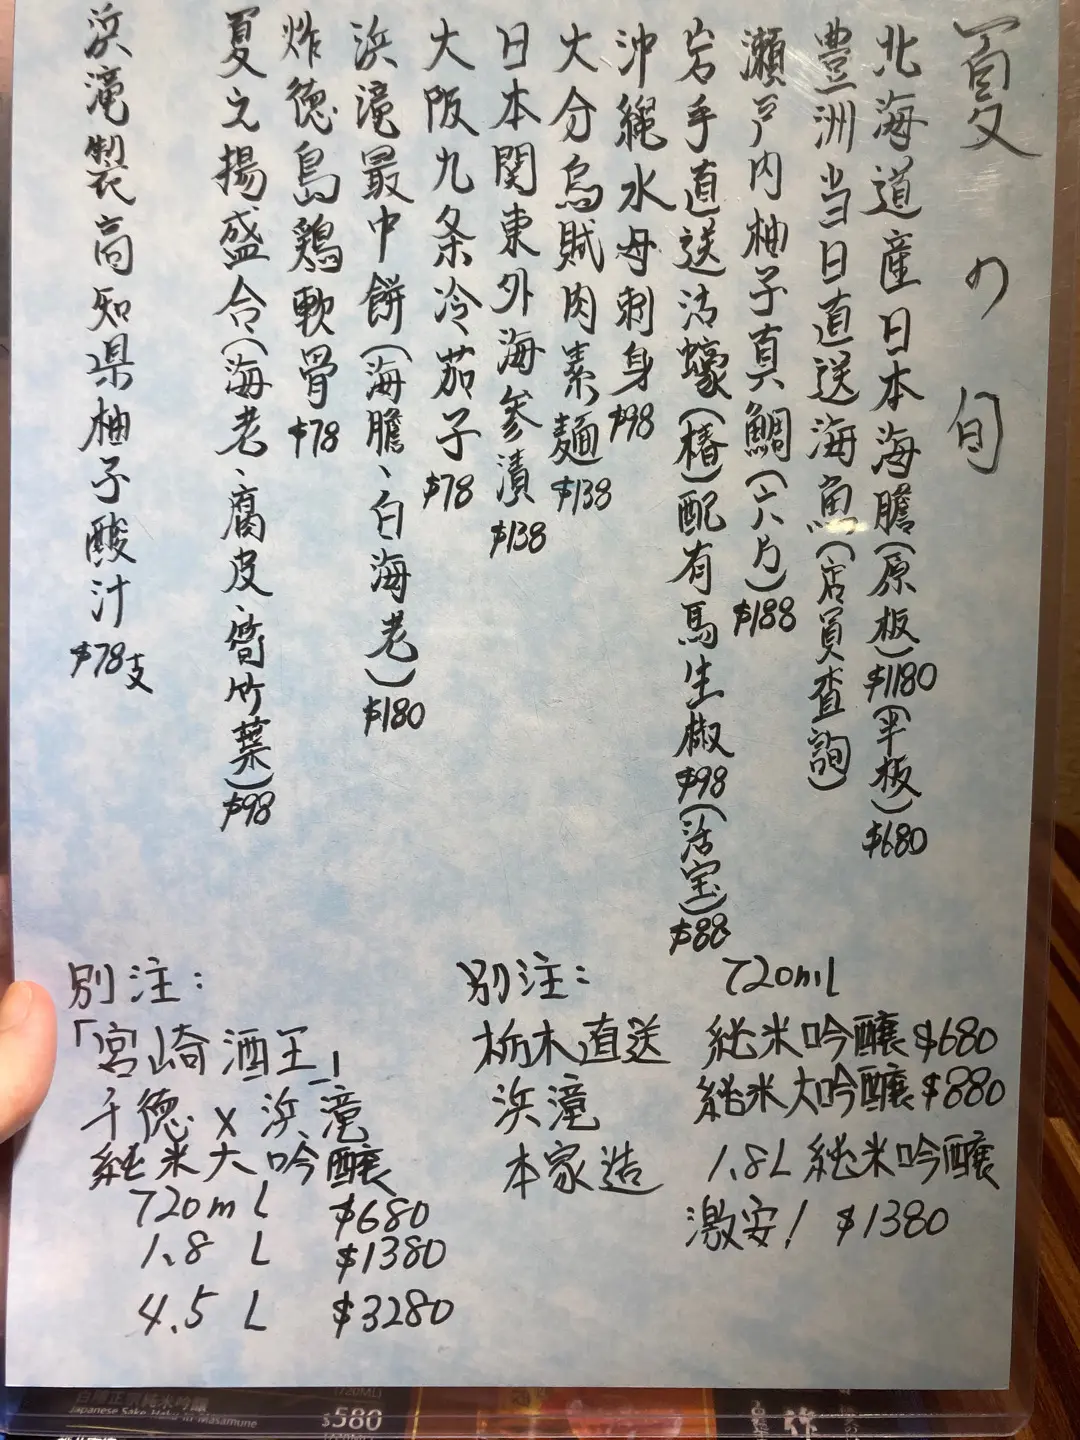 夏の旬
北海道産日本海膽(原板)$1180(半板)$680
豊洲当日直送海魚(店員查詢)
瀬戸内柚子真鯛(六片)$188
岩手直送活蠔(椿)配有馬生椒$98(活宝)$88
沖縄水母刺身$98
大分烏賊肉素麺$138
日本関東外海參漬$138
大阪九条冷茄子$78
浜滝最中餅(海膽、白海老)$180
炸徳島鶏軟骨$78
夏之揚盛合(海老、腐皮、筍竹葉)$98
浜滝製高知県柚子酸汁$78支
別注:
「宮崎酒王」
千徳 x 浜滝
純米大吟醸
720mL $680
1.8L $1380
4.5L $3280
別注: 720mL
栃木直送 純米吟醸$680
浜滝 純米大吟醸$880
本家造 1.8L純米吟醸
激安! $1380
白鷹正宗純米吟醸
Japanese Sake
(720ML)
$580